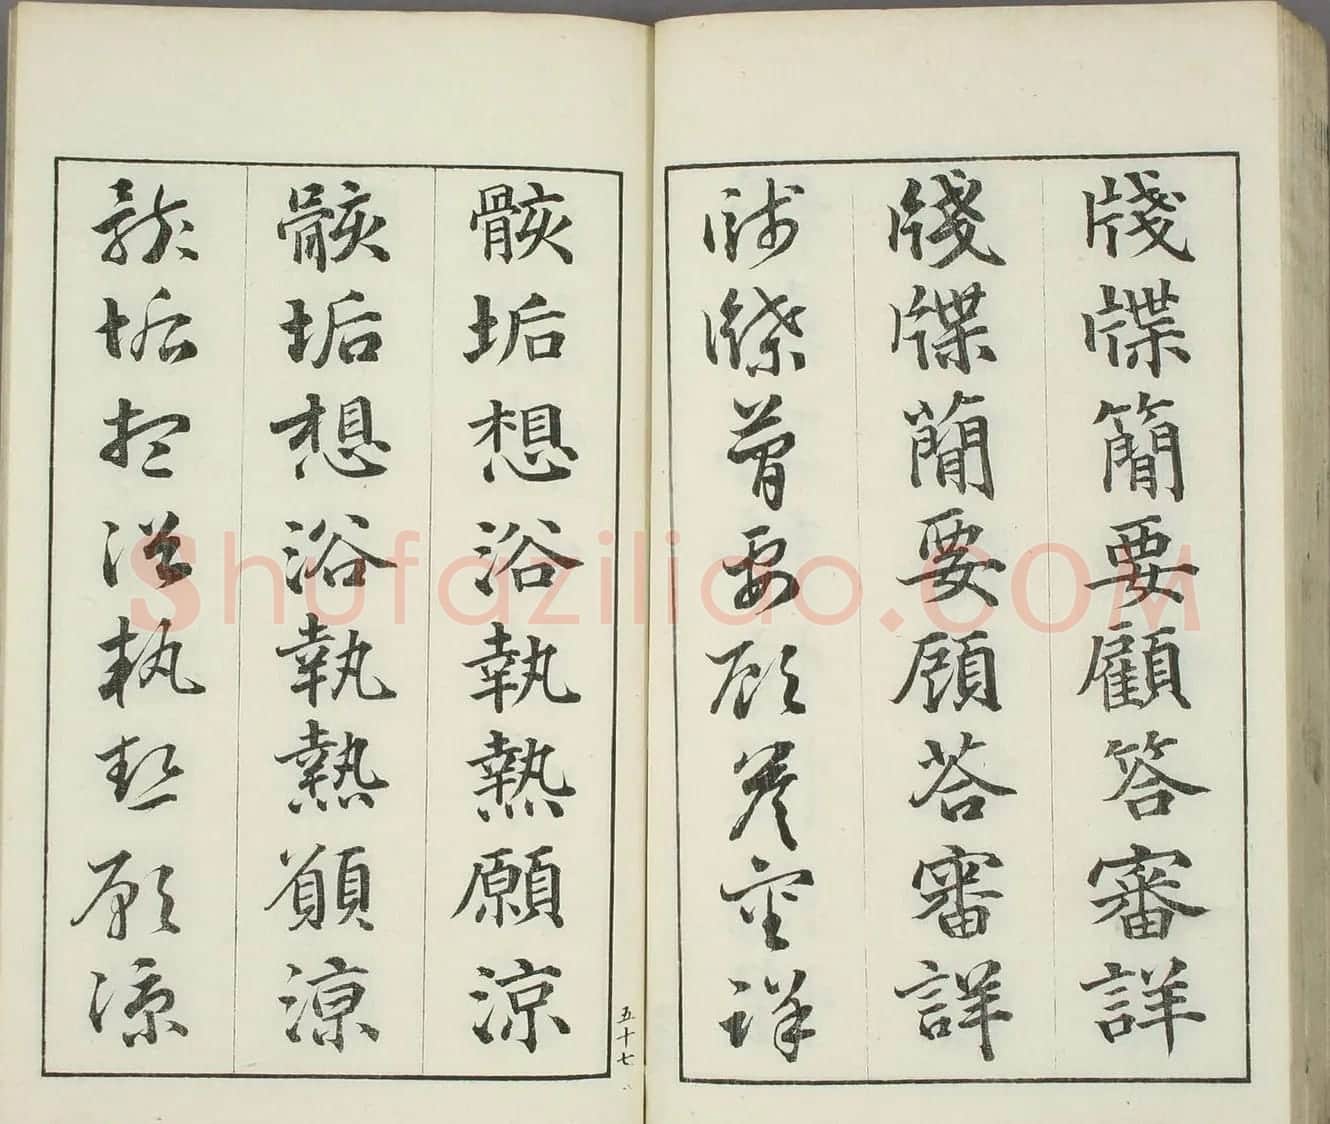 牋牒簡要顧答審詳
牋牒簡要顧答審詳
牋牒簡要顧答審詳
骸垢想浴執熱願涼
骸垢想浴執熱願涼
骸垢想浴執熱願涼
五十七
shufaziliao.COM